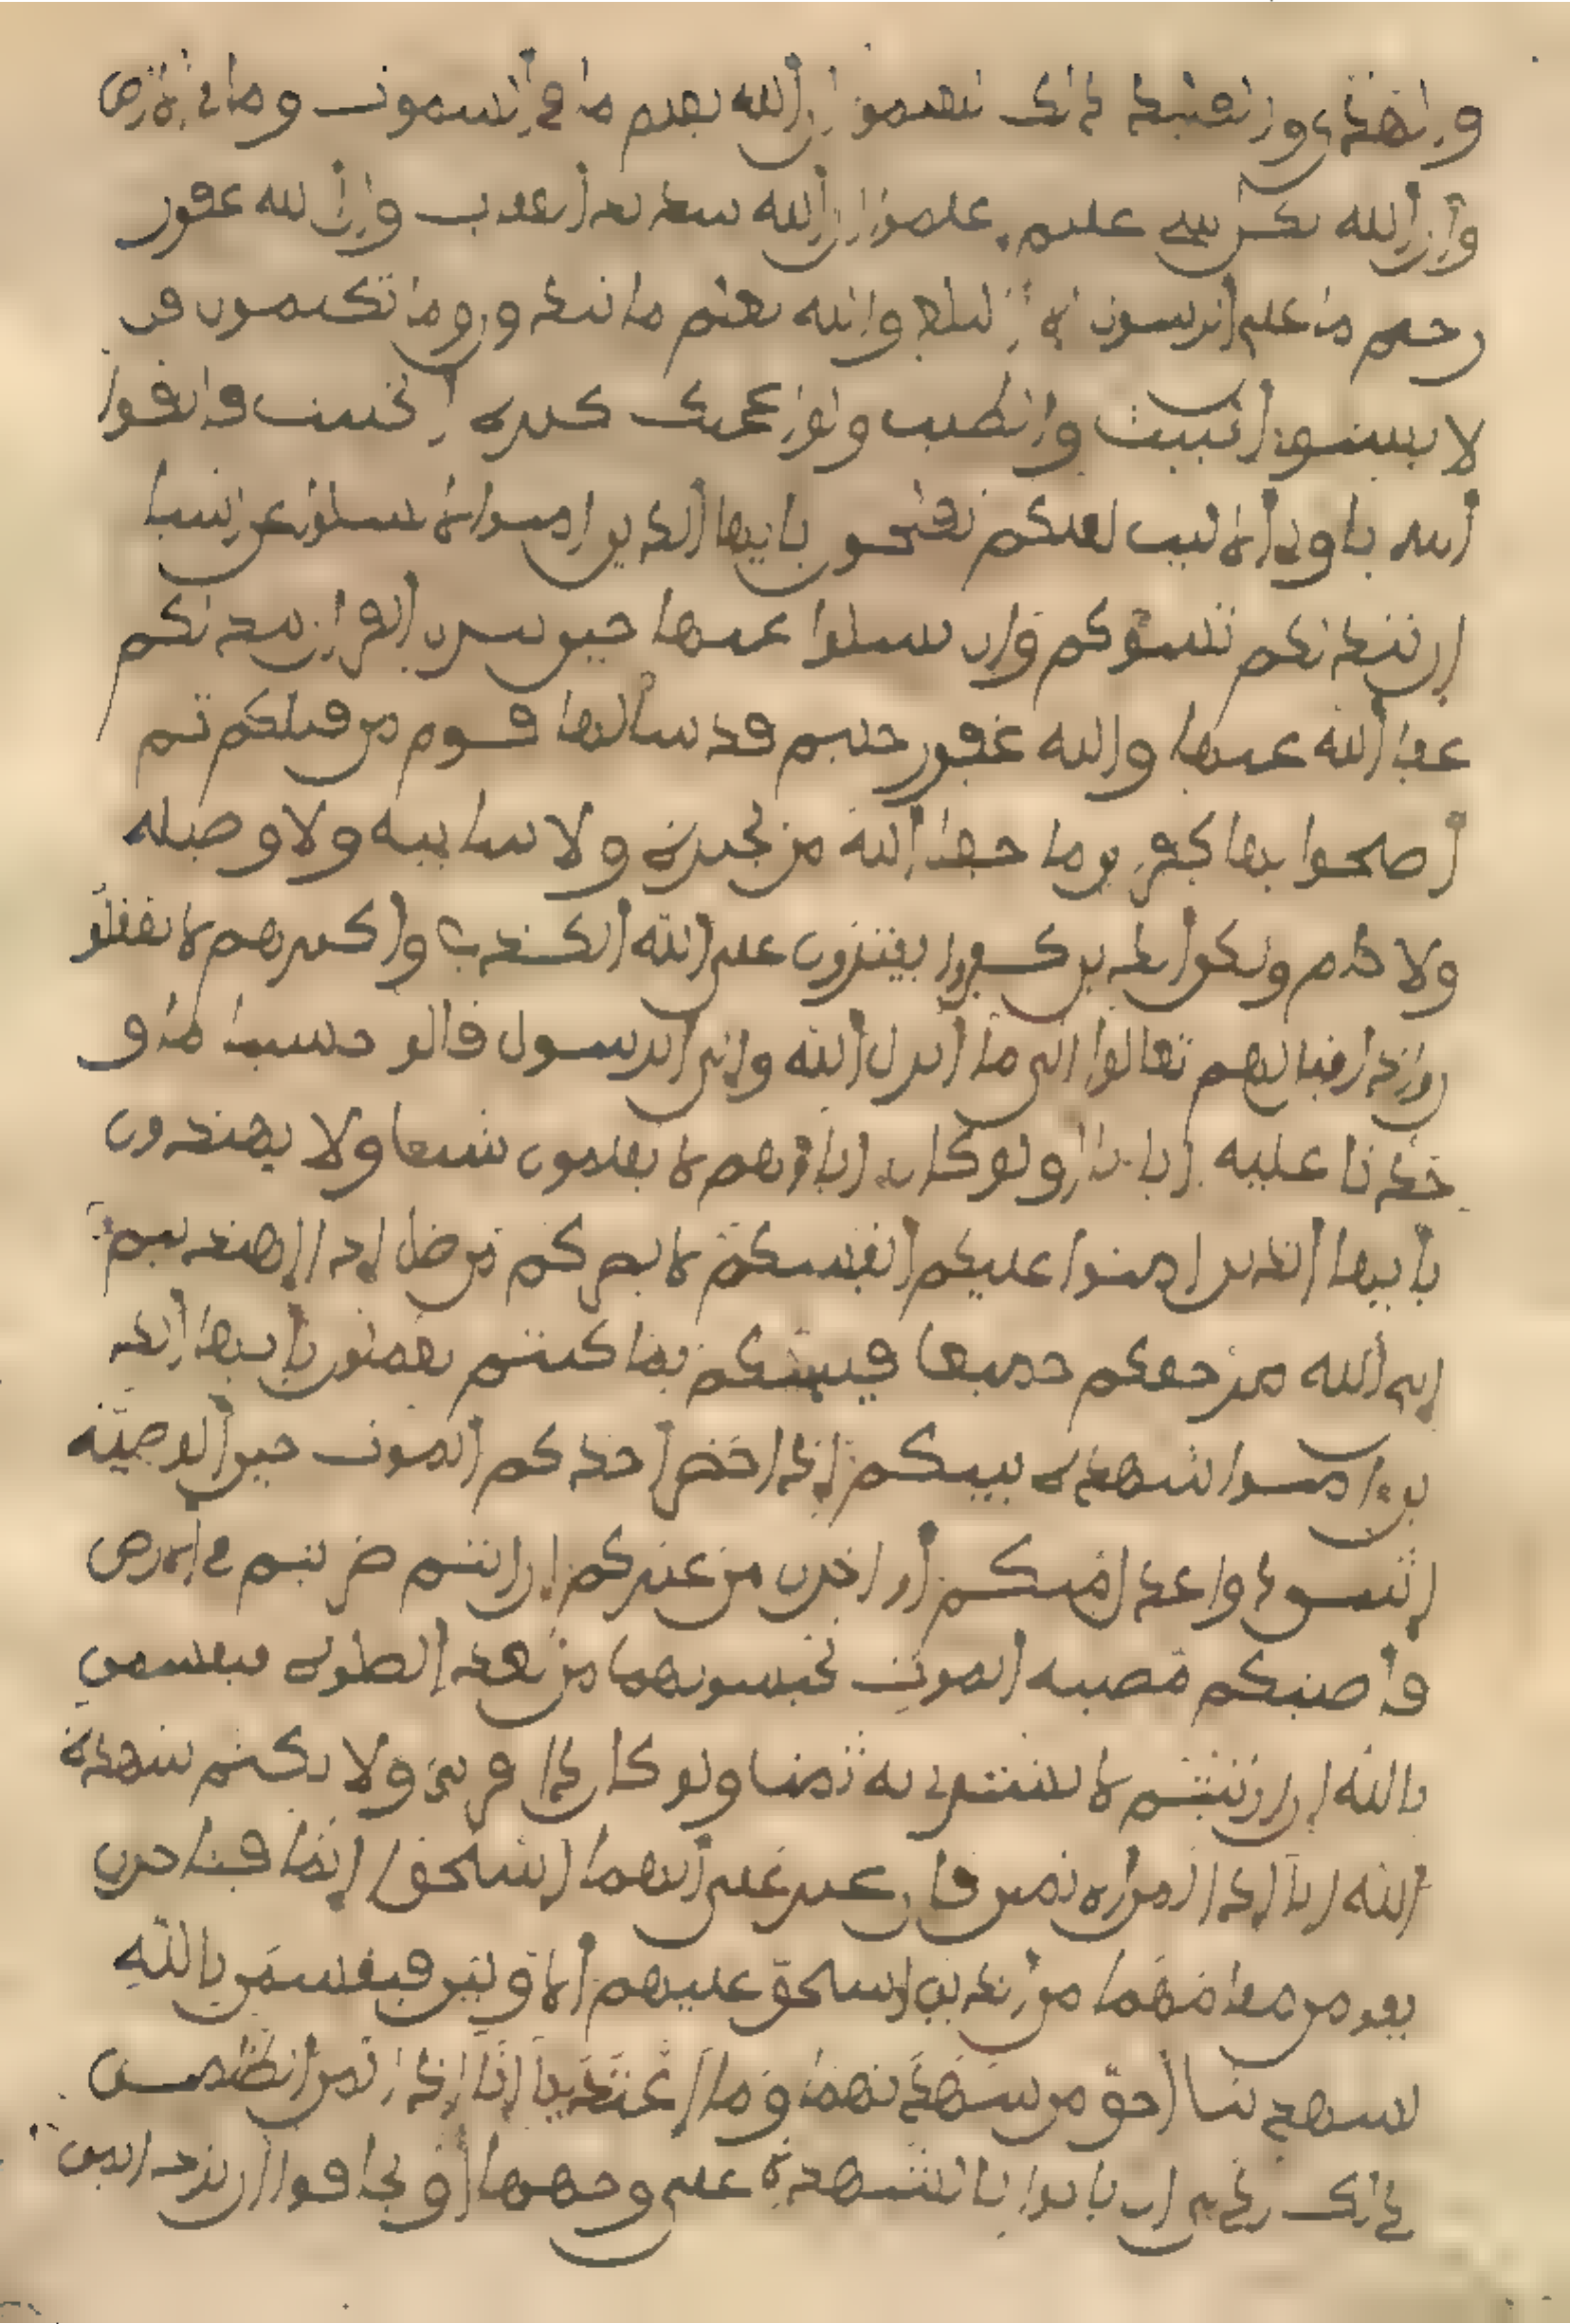 والهدي والقليد ذلك لتعلموا أن الله يعلم ما في السموت وما في الأرض
وأن الله بكل شيء عليم اعلموا أن الله شديد العقاب وأن الله غفور
رحيم ما على الرسول إلا البلغ والله يعلم ما تبدون وما تكتمون قل
لا يستوي الخبيث والطيب ولو أعجبك كثرة الخبيث فاتقوا
الله ياولي الألبب لعلكم تفلحون يأيها الذين ءامنوا لا تسلوا عن أشيا
إن تبد لكم تسؤكم وإن تسلوا عنها حين ينزل القرءان تبد لكم
عفا الله عنها والله غفور حليم قد سألها قوم من قبلكم ثم
أصبحوا بها كفرين ما جعل الله من بحيرة ولا سايبة ولا وصيلة
ولا حام ولكن الذين كفروا يفترون على الله الكذب وأكثرهم لا يعقلو
ن وإذا قيل لهم تعالوا إلى ما أنزل الله وإلى الرسول قالوا حسبنا ما و
جدنا عليه ءاباءنا أولو كان ءاباؤهم لا يعلمون شيئا ولا يهتدون
يأيها الذين ءامنوا عليكم أنفسكم لا يضركم من ضل إذا اهتديتم
إلى الله مرجعكم جميعا فينبئكم بما كنتم تعملون يأيها الذ
ين ءامنوا شهدة بينكم إذا حضر أحدكم الموت حين الوصية
اثنن ذوا عدل منكم أو ءاخرن من غيركم إن أنتم ضربتم في الأرض
فأصبتكم مصيبة الموت تحبسونهما من بعد الصلوة فيقسمن
بالله إن ارتبتم لا نشتري به ثمنا ولو كان ذا قربى ولا نكتم شهدة
الله إنا إذا لمن الأثمين فإن عثر على أنهما استحقا إثما فـٔاخرن
يقومن مقامهما من الذين استحق عليهم الأولين فيقسمن بالله
لشهدتنا أحق من شهدتهما وما اعتدينا إنا إذا لمن الظلمين
ذلك أدنى أن يأتوا بالشهدة على وجهها أو يخافوا أن ترد أيمن